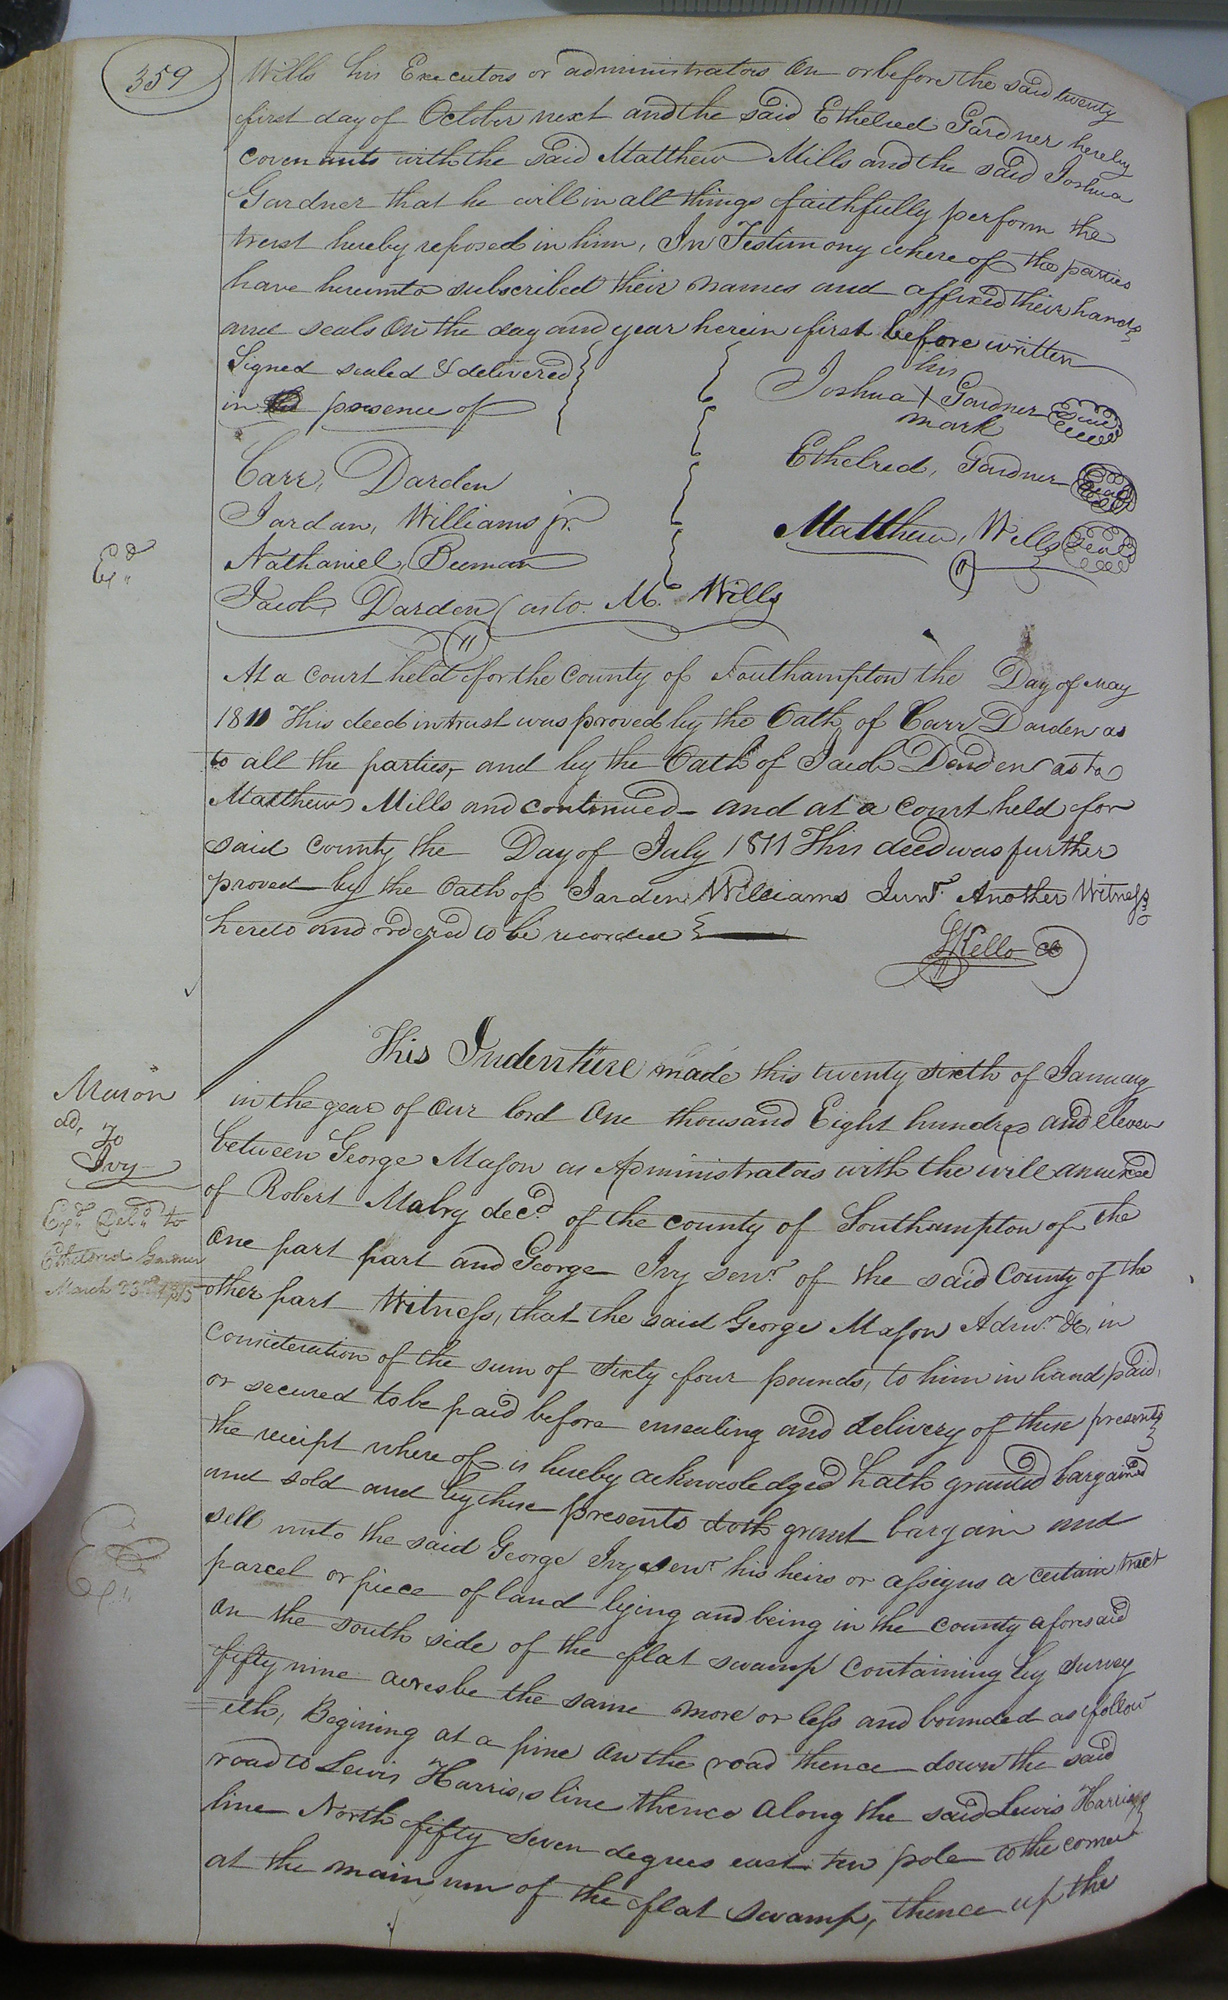 359
Wills his Executors or administrators On or before the said twenty
first day of October next and the said Ethelred Gardner hereby
covenants with the said Matthew Mills and the said Joshua
Gardner that he will in all things faithfully perform the
trust hereby reposed in him, In Testimony where of the parties
have hereunto subscribed their names and affixed their hands
and seals On the day and year herein first before written
Signed sealed & delivered
in presence of
his
Joshua X Gardner Seal
mark
Ethelred, Gardner Seal
Matthew, Wills Seal
Carr, Darden
Jordan, Williams jr.
Nathaniel, Beeman
Jacob, Darden (as to. M. Wills
Exd
At a court held for the county of Southampton the Day of May
1811 This deed in trust was proved by the Oath of Carr Darden as
to all the parties, and by the Oath of Jacob Darden as to
Matthew Mills and continued - and at a court held for
said county the Day of July 1811 This deed was further
proved by the Oath of Jarden Williams Junr. Another Witness
hereto and ordered to be recorded
SKello cc
Mason
dd, To
Ivy
Exd. Deld. to
Ethelred Gardner
March 23rd 1815
This Indenture made this twenty sixth of January
in the year of Our lord One thousand Eight hundred and eleven
between George Mason as Administrators with the will annexed
of Robert Mabry decd. of the county of Southampton of the
One part part and George Ivy senr. of the said County of the
other part Witness, that the said George Mason Admr. &c, in
Consideration of the sum of Sixty four pounds, to him in hand paid,
or secured to be paid before ensealing and delivery of these presents
the receipt where of is hereby acknowledged hath granted bargained
and sold and by these presents doth grant bargain and
sell unto the said George Ivy senr. his heirs or assigns a certain tract
parcel or piece of land lying and being in the county aforesaid
On the south side of the flat swamp Containing by survey
fifty nine acres be the same more or less and bounded as follow
=eth, Begining at a pine On the road thence down the said
road to Lewis Harris,s line thence along the said Lewis Harris,s
line North fifty seven degrees east ten pole to the corner
at the main run of the flat swamp, thence up the
Exd.